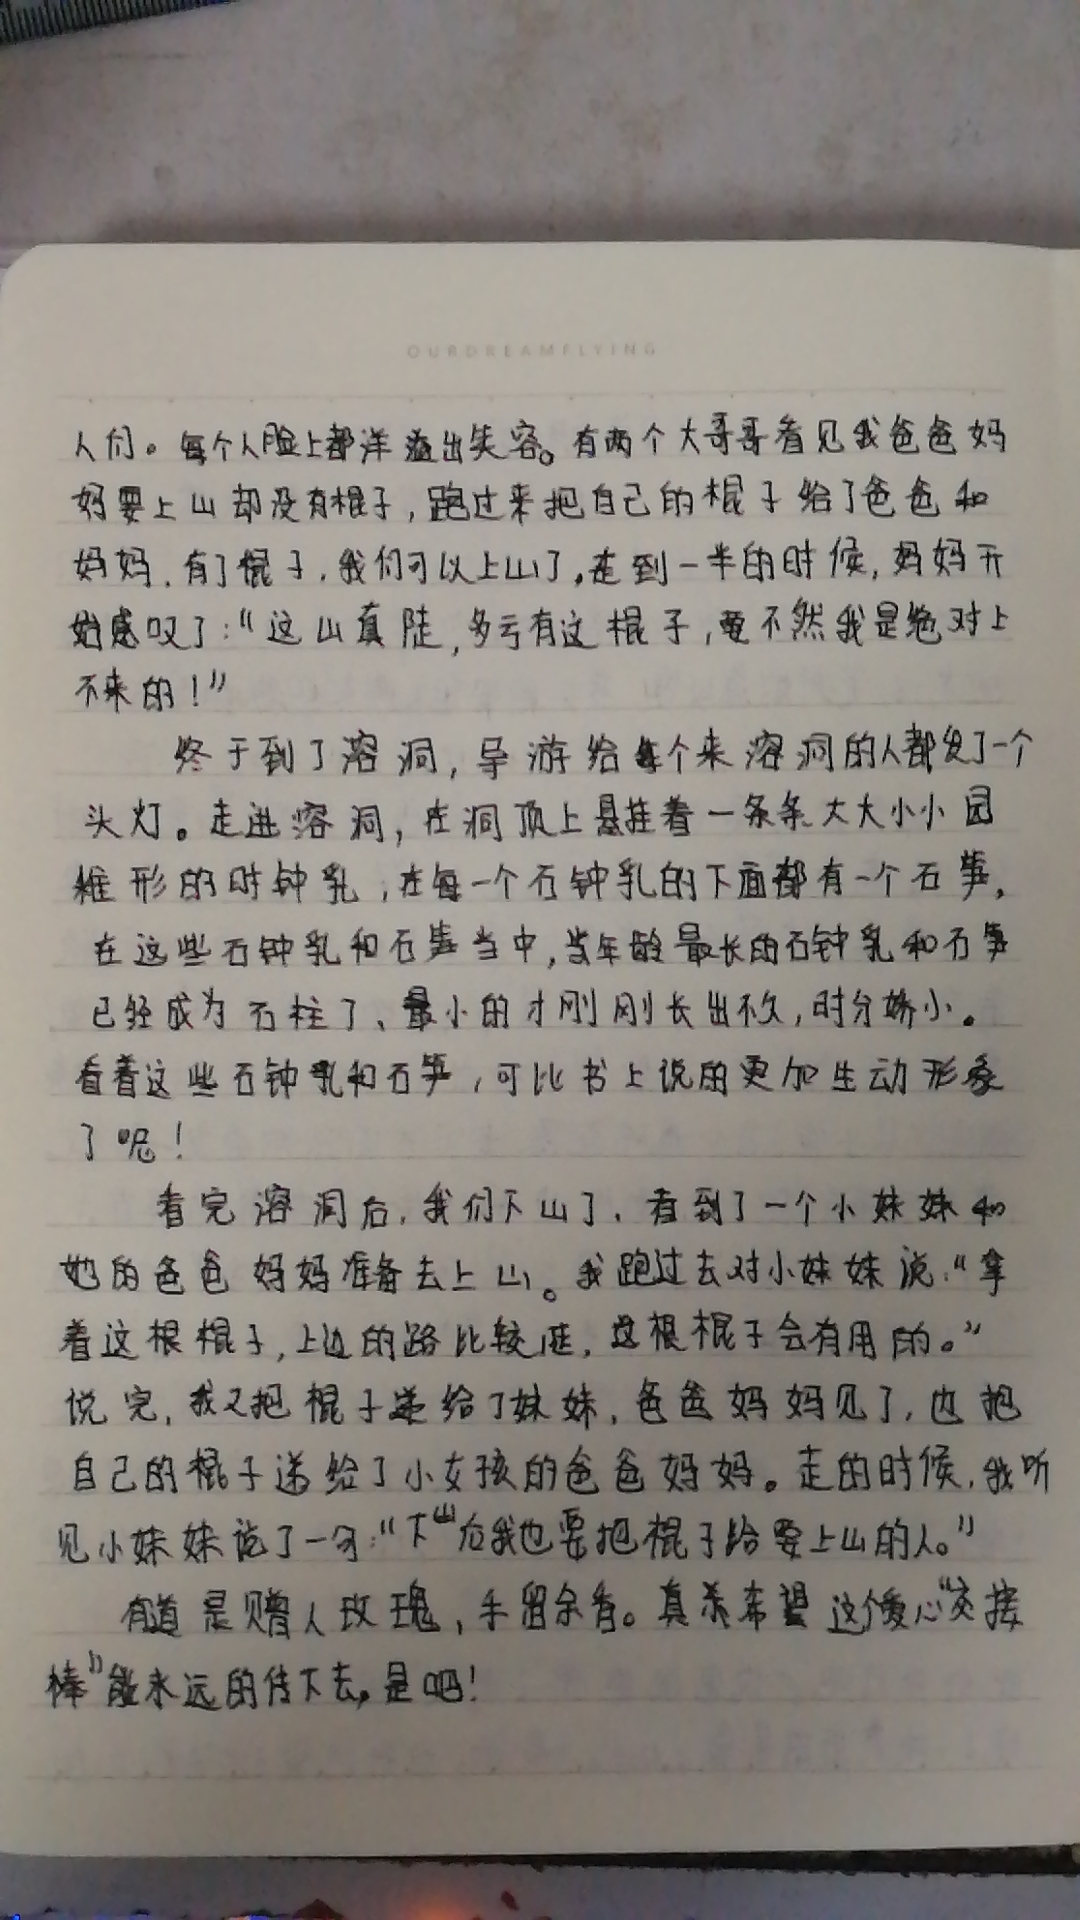 OURDREAMFLYING
人们。每个人脸上都洋溢出笑容。有两个大哥哥看见我爸爸妈
妈要上山却没有棍子，跑过来把自己的棍子给了爸爸和
妈妈，有了棍子，我们可以上山了。走到一半的时候，妈妈开
始感叹了：“这山真陡，多亏有这棍子，要不然我是绝对上
不来的！”
终于到了溶洞，导游给每个来溶洞的人都发了一个
头灯。走进溶洞，在洞顶上悬挂着一条条大大小小园
椎形的时钟乳，在每一个石钟乳的下面都有一个石笋，
在这些石钟乳和石笋当中，当年龄最长的石钟乳和石笋
已经成为石柱了、最小的才刚刚长出不久，时分娇小。
看着这些石钟乳和石笋，可比书上说的更加生动形象
了呢！
看完溶洞后，我们下山了，看到了一个小妹妹和
她的爸爸妈妈准备去上山。我跑过去对小妹妹说：“拿
着这根棍子，上边的路比较陡，这根棍子会有用的。”
说完，我又把棍子递给了妹妹，爸爸妈妈见了，也把
自己的棍子递给了小女孩的爸爸妈妈。走的时候，我听
见小妹妹说了一句：“下山后我也要把棍子给要上山的人。”
有道是赠人玫瑰，手留余香。真希望这个爱心“交接
棒”能永远的传下去。是吧！